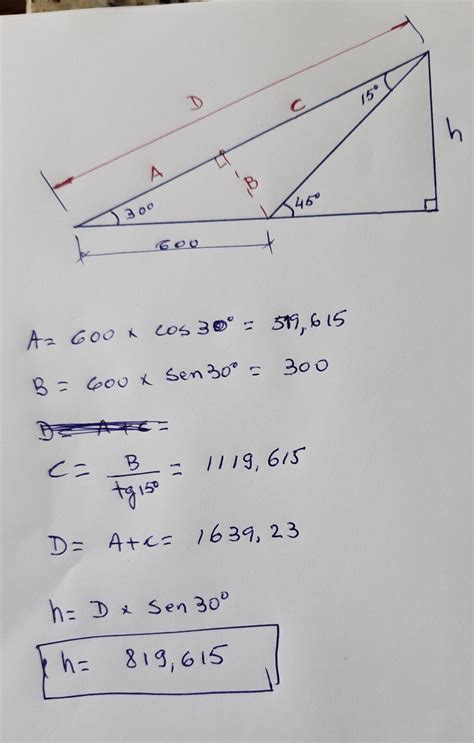 D
C
15°
A
h
B
30°
45°
600
A= 600 x cos30° = 519,615
B = 600 x sen30° = 300
D= A+C =
C = B/tg15° = 1119,615
D= A+C= 1639,23
h= D x sen30°
h= 819,615